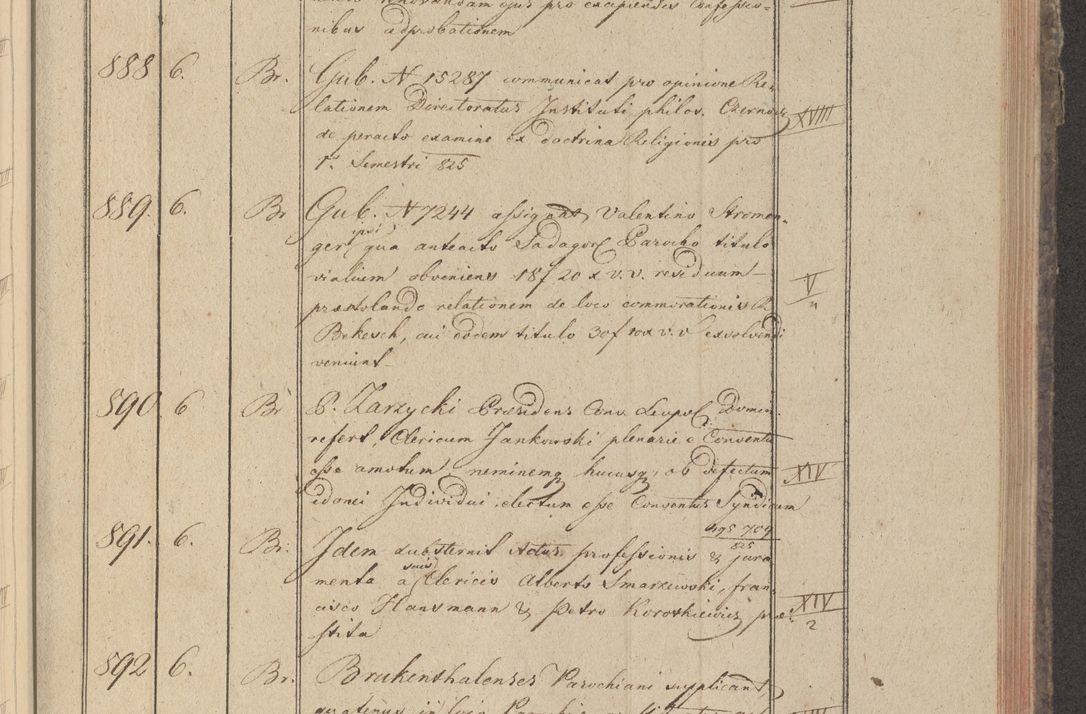 pro excipiendis Confessio=
nibus adprobationem
888 6. Br. Gub. N 15287 communicat pro opinione Re=
lationem Directoratus Instituti philos. Czernov XVIII
de peracto examine ex doctrina Religionis pro
1o Semestri 825
889. 6. Br Gub. N 7244 assignat Valentino Stromen=
geri qua anteacto Sadagor Parocho titulo
vialium obveniens 18f 20 x v. v. residuum V
praestolando relationem de loco commorationis R. 4
Bekesch, cui eodem titulo 30f 10x v. v exsolvendi
veniunt
890 6 Br P. Zarzycki Praesidens Conv. Leopol Domin.
refert, Clericum Jankowski plenarie e Conventu
esse amotum, neminemq hucusq, ob defectum XIV
idonei Individui electum esse Conventus Syndicum
495 709
825
891. 6. Br. Idem substernit Actus professionis & jura
menta a suis Clericis Alberto Smarzewski, fran=
cisco Hansmann & Petro Korotkiewicz prae= XIV
stita 2
892 6. Br. Brukenthalenses Parochiani supplicant,
quatenus in loco